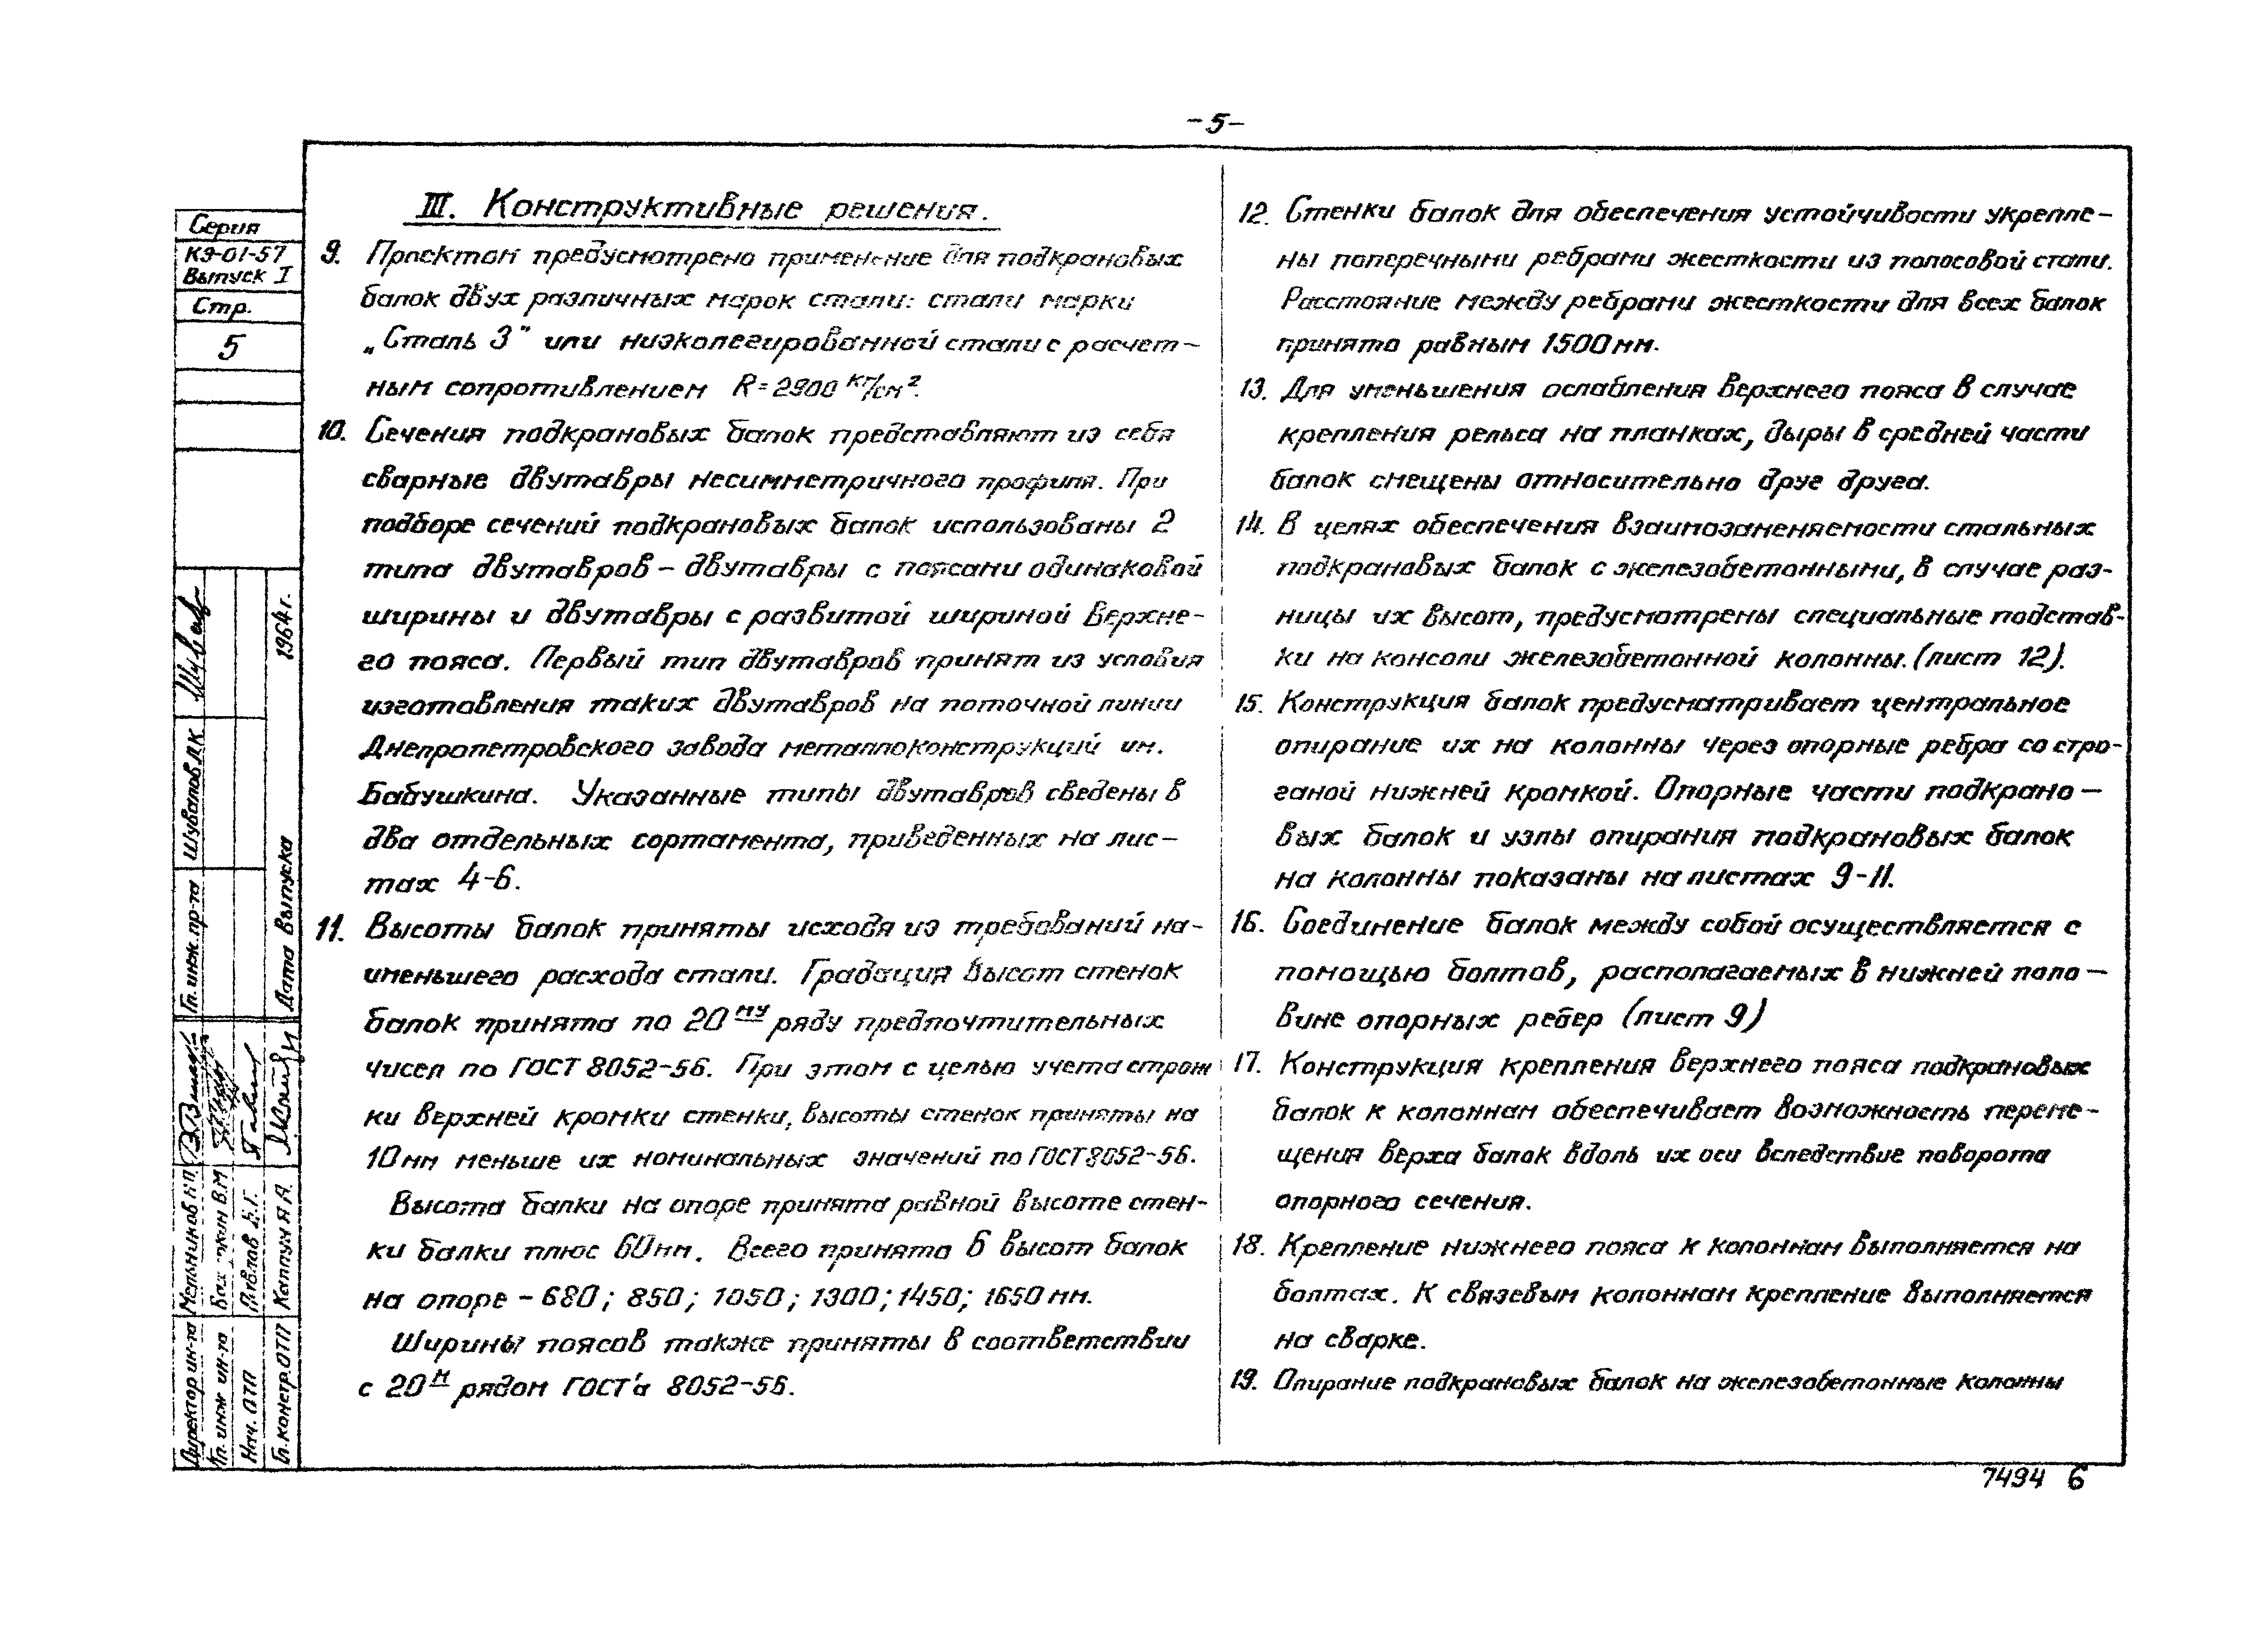 -5-
Серия
КЭ-01-57
Выпуск I
Стр.
5
1964 г.
Дата Выпуска
Шувалов Л.К
Гл. инж. пр-та
Мельников Н.П.
В.М
Павлов Б.Г.
Каплун Я А.
Директор ин-та
Гл. инж ин-та
Нач. ОТП
Гл. констр. ОТП
III. Конструктивные решения.
9. Проектом предусмотрено применение для подкрановых
балок двух различных марок стали: стали марки
„Сталь 3" или низколегированной стали с расчет-
ным сопротивлением R=2900 кг/см².
10. Сечения подкрановых балок представляют из себя
сварные двутавры несимметричного профиля. При
подборе сечений подкрановых балок использованы 2
типа двутавров - двутавры с поясами одинаковой
ширины и двутавры с развитой шириной верхне-
го пояса. Первый тип двутавров принят из условия
изготовления таких двутавров на поточной линии
Днепропетровского завода металлоконструкций им.
Бабушкина. Указанные типы двутавров сведены в
два отдельных сортамента, приведенных на лис-
тах 4-6.
11. Высоты балок приняты исходя из требований на-
именьшего расхода стали. Градация высот стенок
балок принята по 20му ряду предпочтительных
чисел по ГОСТ 8052-56. При этом с целью учета строж
ки верхней кромки стенки, высоты стенок приняты на
10мм меньше их номинальных значений по ГОСТ 8052-56.
Высота балки на опоре принята равной высоте стен-
ки балки плюс 60мм. Всего принято 6 высот балок
на опоре - 680; 850; 1050; 1300; 1450; 1650 мм.
Ширины поясов также приняты в соответствии
с 20м рядом ГОСТ'а 8052-56.
12. Стенки балок для обеспечения устойчивости укрепле-
ны поперечными ребрами жесткости из полосовой стали.
Расстояние между ребрами жесткости для всех балок
принято равным 1500мм.
13. Для уменьшения ослабления верхнего пояса в случае
крепления рельса на планках, дыры в средней части
балок смещены относительно друг друга.
14. В целях обеспечения взаимозаменяемости стальных
подкрановых балок с железобетонными, в случае раз-
ницы их высот, предусмотрены специальные подстав-
ки на консоли железобетонной колонны. (лист 12).
15. Конструкция балок предусматривает центральное
опирание их на колонны через опорные ребра со стро-
ганой нижней кромкой. Опорные части подкрано-
вых балок и узлы опирания подкрановых балок
на колонны показаны на листах 9-11.
16. Соединение балок между собой осуществляется с
помощью болтов, располагаемых в нижней поло-
вине опорных ребер (лист 9)
17. Конструкция крепления верхнего пояса подкрановых
балок к колоннам обеспечивает возможность переме-
щения верха балок вдоль их оси вследствие поворота
опорного сечения.
18. Крепление нижнего пояса к колоннам выполняется на
болтах. К связевым колоннам крепление выполняется
на сварке.
19. Опирание подкрановых балок на железобетонные колонны
7494 6